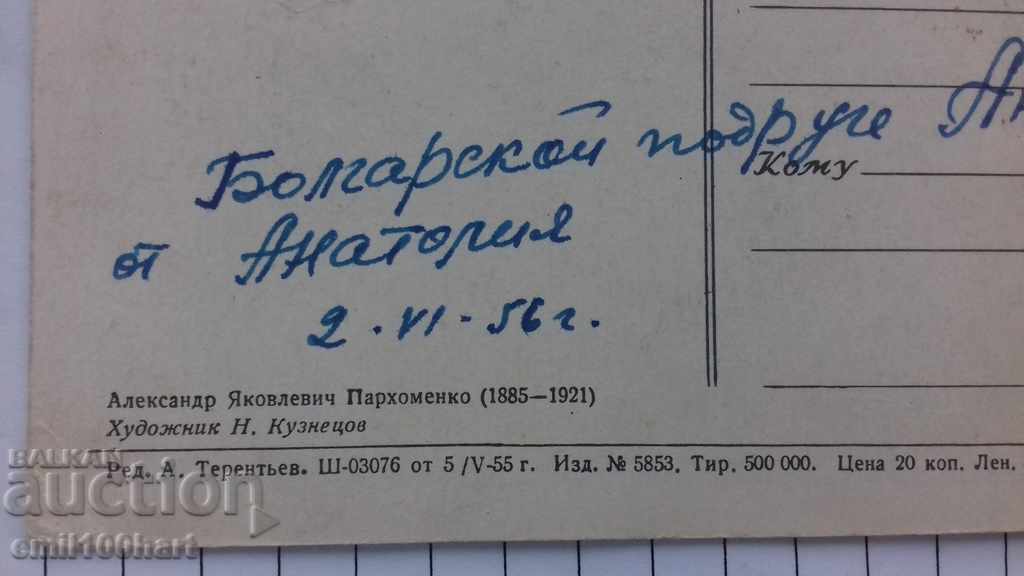 Болгарской подруге
от Анатория
2. VI - 56 г.
Кому
Александр Яковлевич Пархоменко (1885—1921)
Художник Н. Кузнецов
Ред. А. Терентьев. Ш-03076 от 5/V-55 г. Изд. № 5853. Тир. 500 000. Цена 20 коп. Лен.
BALKAN
auction
emil100hart